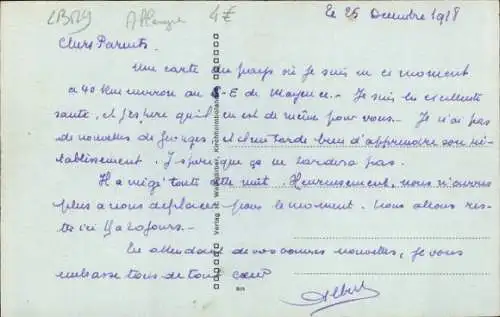 2B529 Allemagne 4€
Le 25 Decembre 1918
Chers Parents.
Une carte du pays où je suis en ce moment
a 40 Km environ au S-E de Mayence. Je suis en excellente
santé, et j'espère qu'il en est de même pour vous. Je n'ai pas
de nouvelles de Georges, et il me tarde bien d'apprendre son ré-
tablissement. J'espère que ça ne tardera pas.
Il a neigé toute cette nuit. Heureusement, nous n'avons
plus a nous deplacer pour le moment. Nous allons res-
ter ici 15 a 20 jours.
En attendant de vos bonnes nouvelles, je vous
embrasse tous de tout coeur
Albert
Verlag Kirchheimbolanden